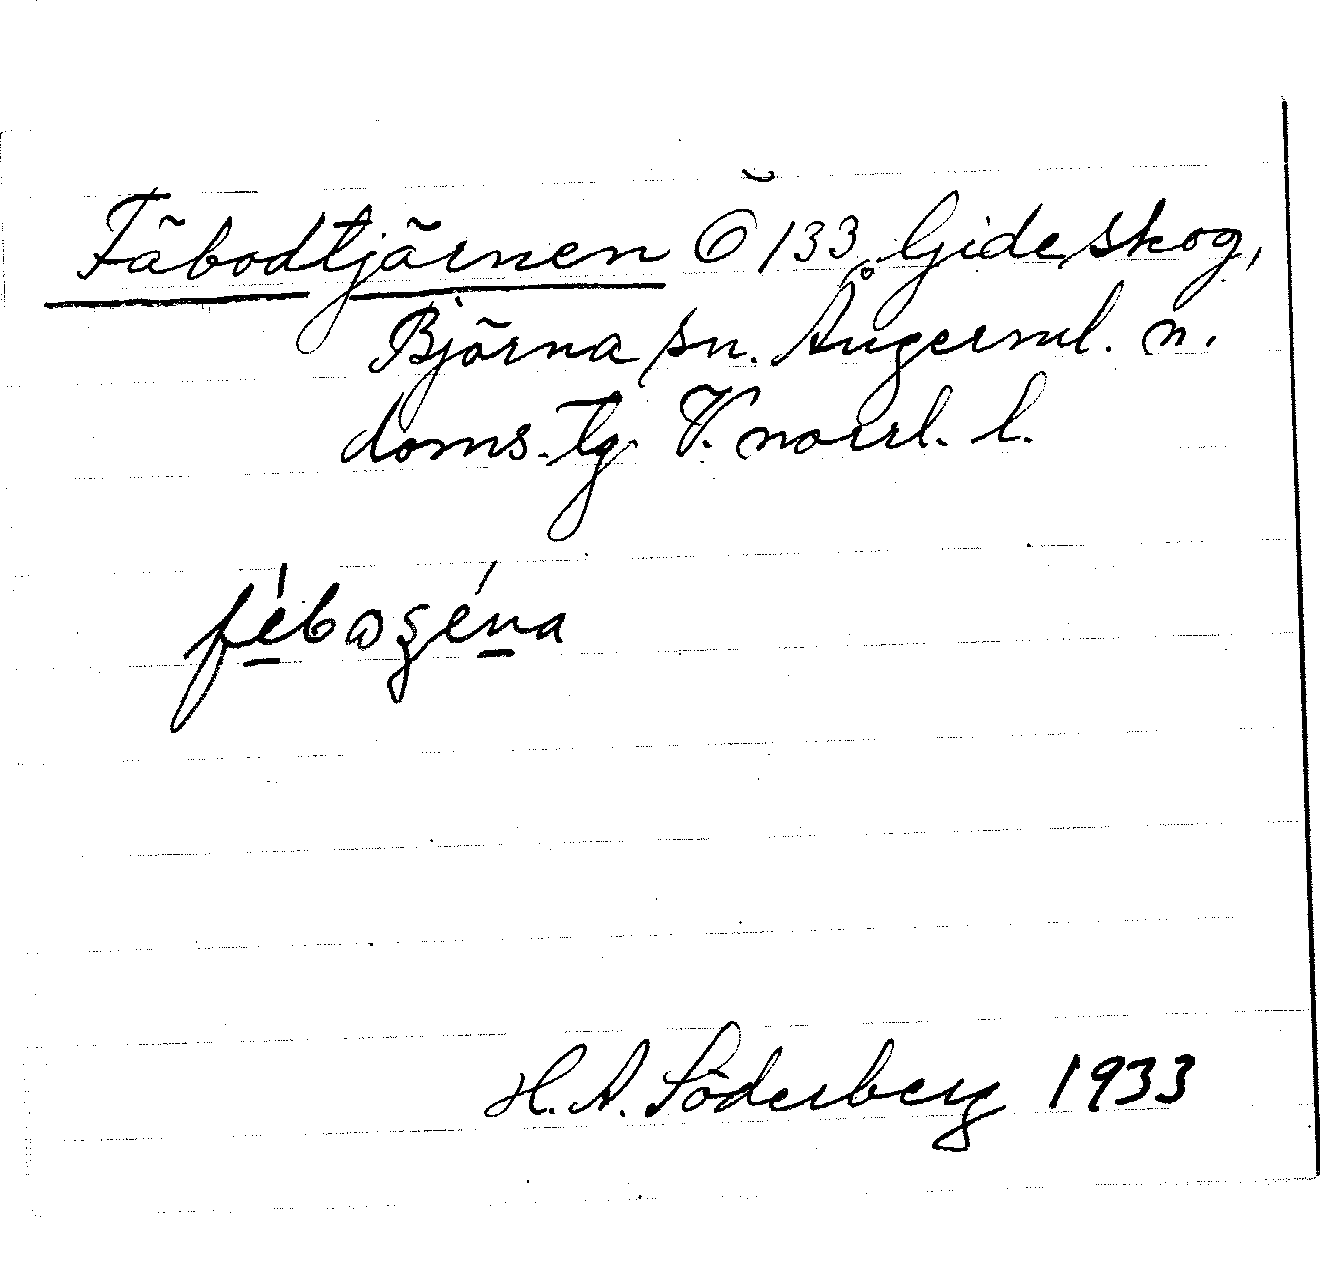 Fäbodtjärnen Ö 133 Gideskog,
Björna sn. Ångerml. n.
doms. tg. V. norrl. l.
H. A. Söderberg 1933